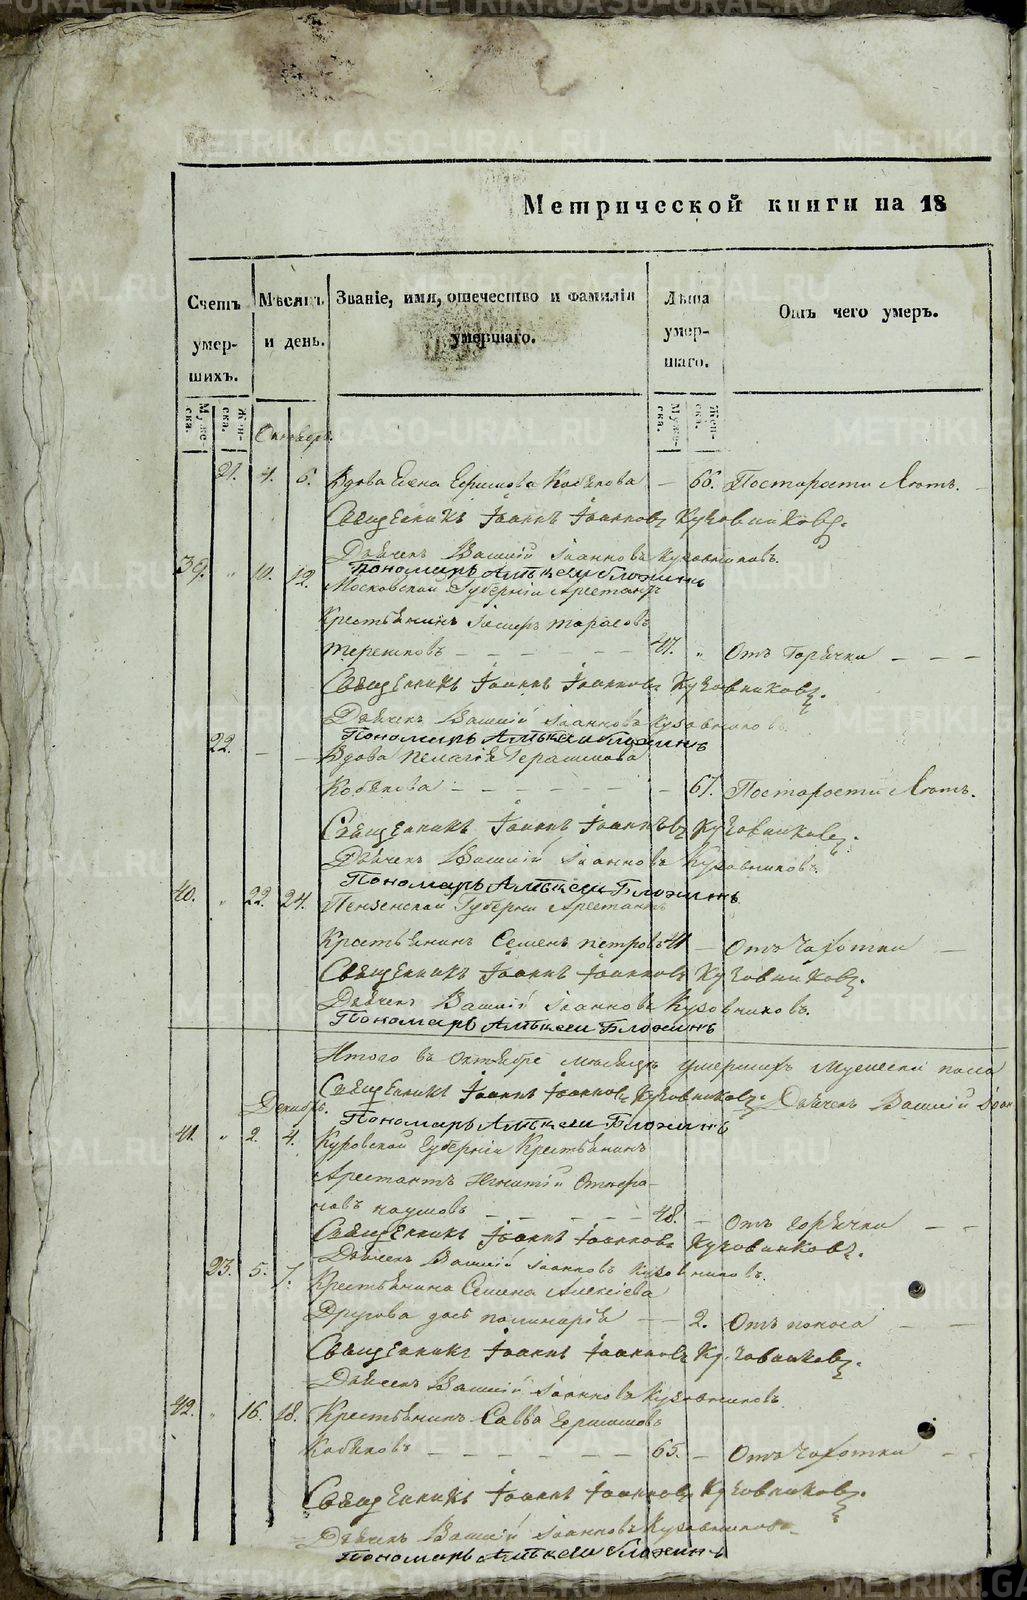 Метрической книги на 18
Счетъ умер- шихъ.
Мѣсяцъ и день.
Званіе, имя, отечество и фамилія умершаго.
Лѣта умер- шаго.
Отъ чего умеръ.
Муже- ска. Жен- ска. Муже- ска. Жен- ска.
Октябрь.
21. 4. 6. Вдова Елена Ефимова Кобѣлова — 66. Постарости Лѣтъ.
Священникъ Іоаннъ Іоанновъ Куховниковъ.
Дьячекъ Василій Іоанновъ Куховниковъ.
Пономарь Алѣксѣй Бложинъ
39. " 10. 12. Московской Губерніи Арестантъ
Крестьянинъ Тарасовъ
Терешковъ — 47. " Отъ Горячки
Священникъ Іоаннъ Іоанновъ Куховниковъ.
Дьячекъ Василій Іоанновъ Куховниковъ
Пономарь Алѣксѣй Бложинъ
22. — — Вдова Пелагія Герасимова
Кобѣлова — 67. Постарости Лѣтъ.
Священникъ Іоаннъ Іоанновъ Куховниковъ.
Дьячекъ Василій Іоанновъ Куховниковъ.
Пономарь Алѣксѣй Бложинъ
40. " 22. 24. Пензенской Губерніи Арестантъ
Крестьянинъ Семенъ Петровъ 41 — Отъ Чахотки —
Священникъ Іоаннъ Іоанновъ Куховниковъ.
Дьячекъ Василій Іоанновъ Куховниковъ.
Пономарь Алѣксѣй Бложинъ
Итого въ Октябрѣ мѣсяцѣ умершихъ Мужеска пола
Священникъ Іоаннъ Іоанновъ Куховниковъ. Дьячекъ Василій Іоан
Декабрь.
Пономарь Алѣксѣй Бложинъ
41. " 2. 4. Губерніи Крестьянинъ
Арестантъ Игнатій
Наумовъ — 48. — Отъ горячки — —
Священникъ Іоаннъ Іоанновъ Куховниковъ.
Дьячекъ Василій Іоанновъ Куховниковъ.
23. 5. 7. Крестьянина Семена Алексіева
Другова — 2. Отъ поноса — —
Священникъ Іоаннъ Іоанновъ Куховниковъ.
Дьячекъ Василій Іоанновъ Куховниковъ
42. " 16. 18. Крестьянинъ Савва
Кобѣковъ — 65. — Отъ Чахотки
Священникъ Іоаннъ Іоанновъ Куховниковъ.
Дьячекъ Василій Іоанновъ Куховниковъ
Пономарь Алѣксѣй Бложинъ
METRIKI.GASO-URAL.RU